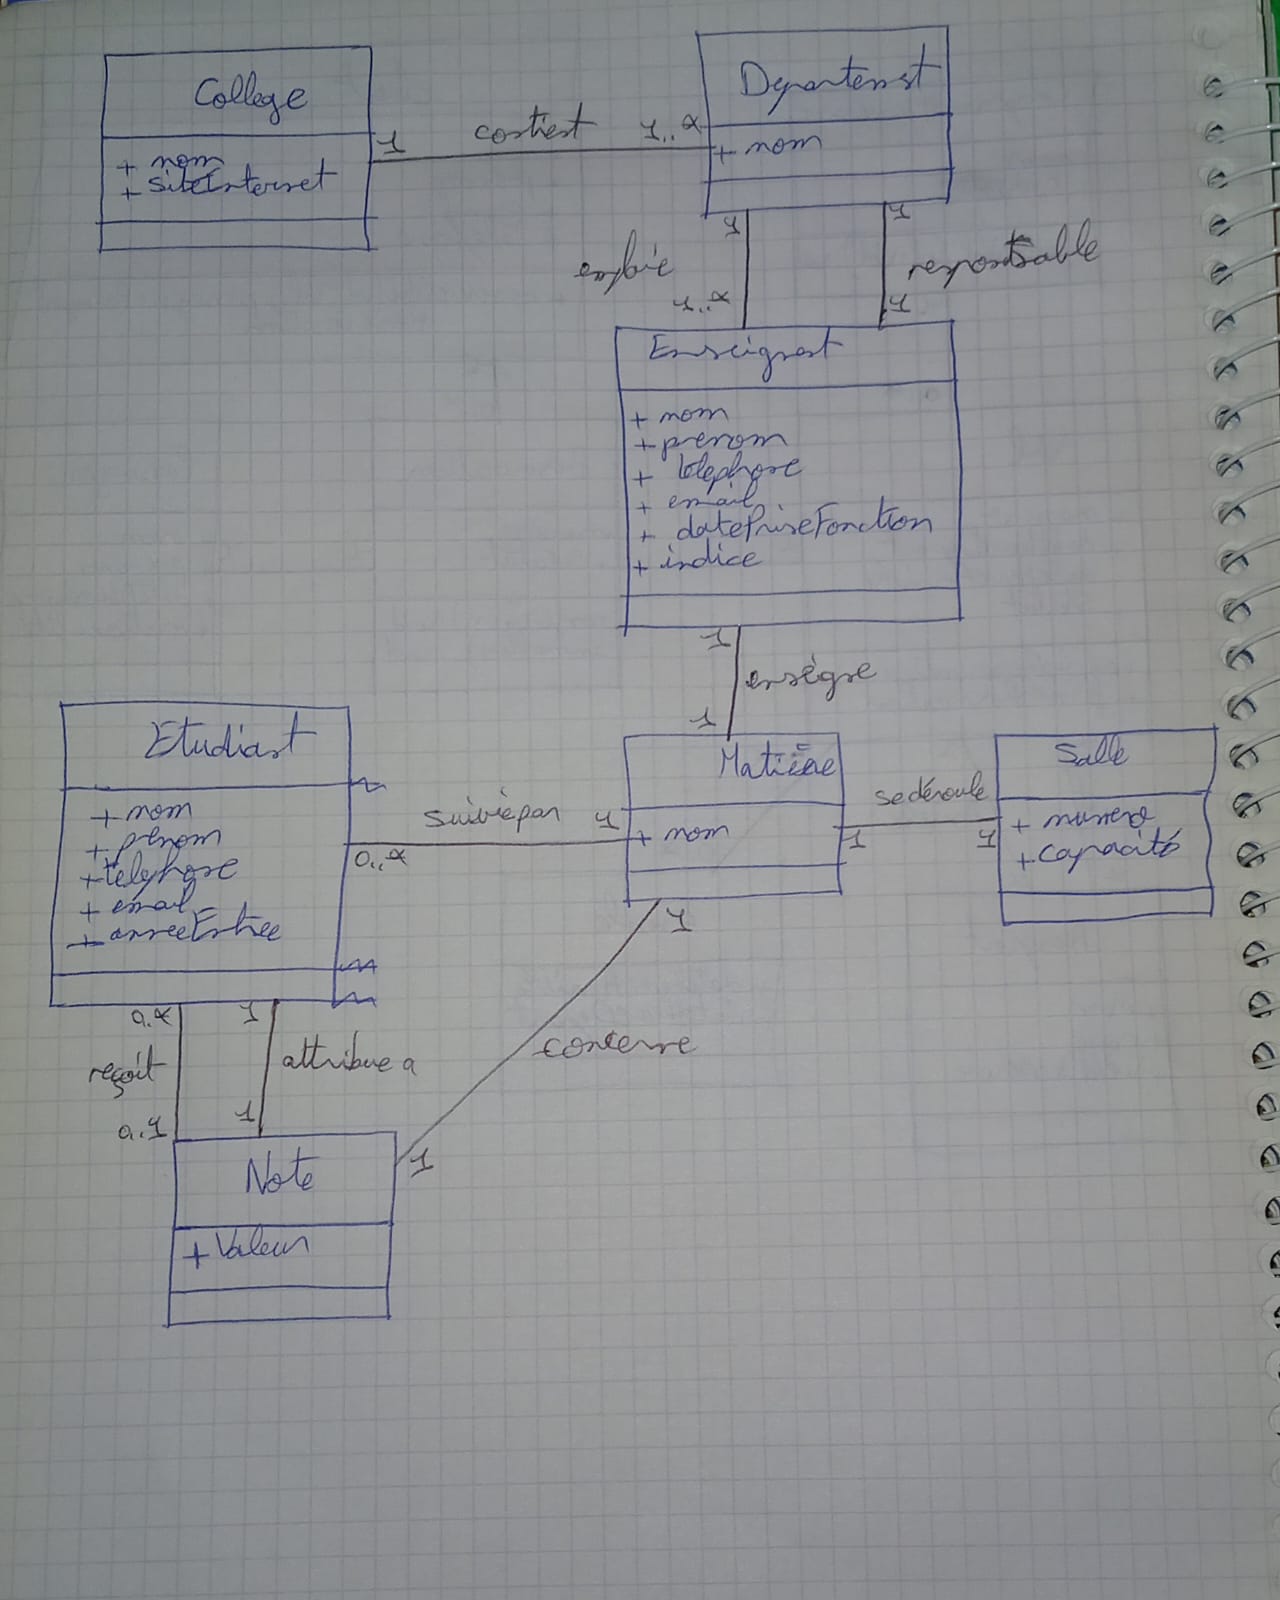 College
+ nom
+ siteInternet
1 contient 1..*
Departement
+ nom
1
emploie
1..*
1
responsable
1
Enseignant
+ nom
+ prenom
+ telephone
+ email
+ datePriseFonction
+ indice
1
enseigne
1
Etudiant
+ nom
+ prenom
+ télephone
+ email
+ anneeEntree
0..*
suiviepar
1
Matière
+ nom
1
sedéroule
1
Salle
+ numero
+ capacité
0.*
reçoit
0.1
1
attribue a
1
1
concerne
1
Note
+ Valeur